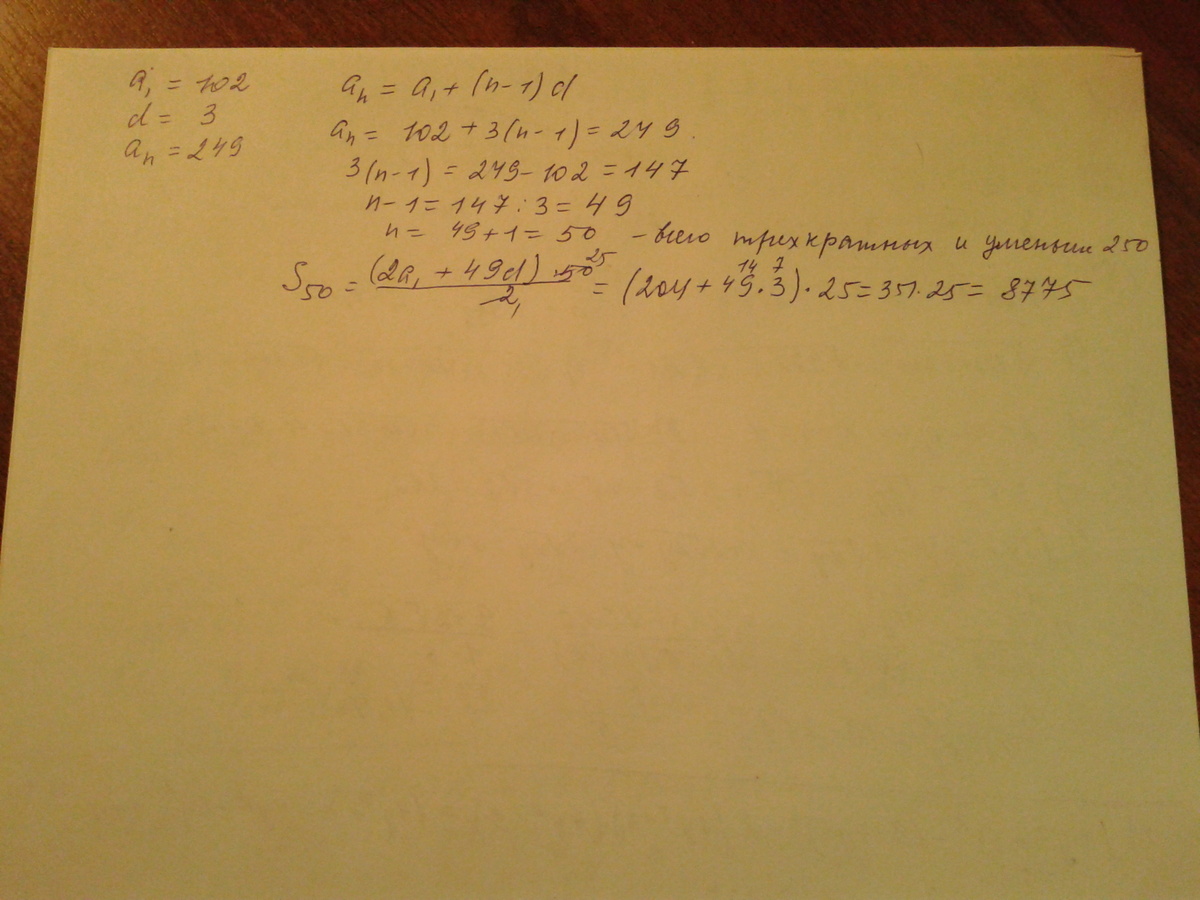 a₁ = 102
d = 3
aₙ = 249
aₙ = a₁ + (n-1)d
aₙ = 102 + 3(n-1) = 249.
3(n-1) = 249-102 = 147
n-1 = 147 : 3 = 49
n = 49+1 = 50 - всего трехкратных и
250
S₅₀ = (2a₁ + 49d) · 50 25 / 2 1 = (204 + 49·3) 147 · 25 = 351·25 = 8775